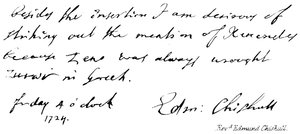 Besides the insertion I am desirous of
striking out the mention of Ximenes
because Zeno was always wrought
in Greek.
friday 4 o'clock
1724.
Edm: Chishull
Revd Edmund Chishull